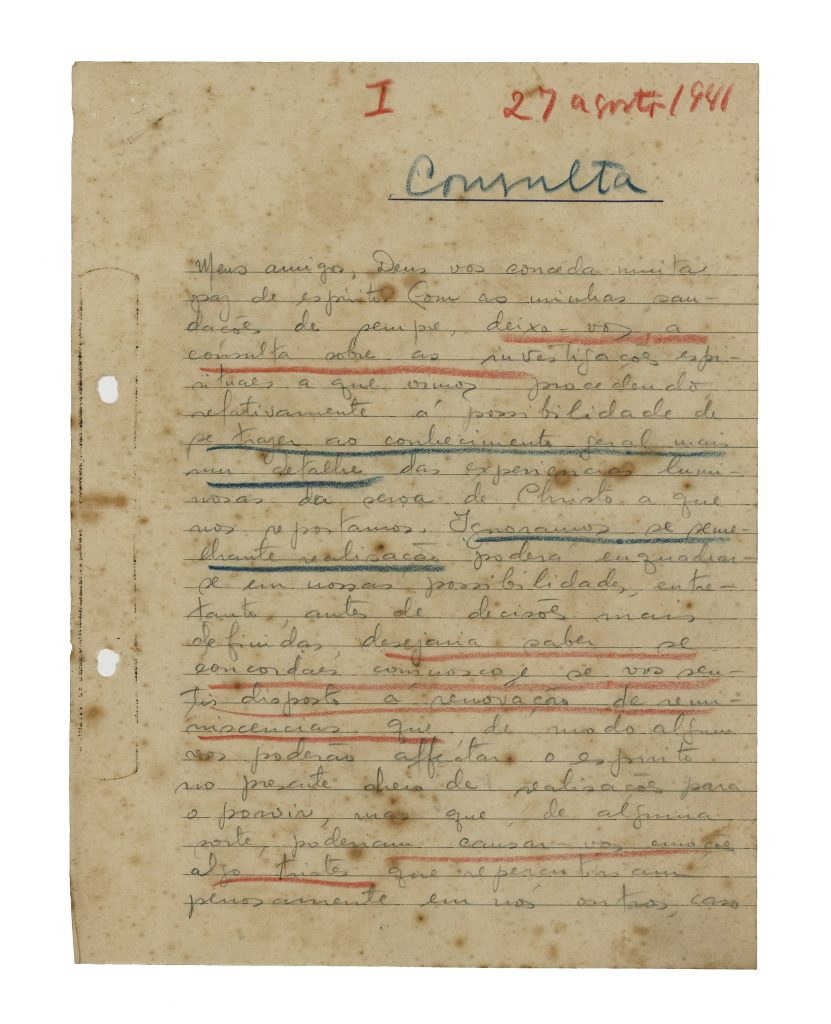 I 27 agosto 1941
Consulta
Meus amigos, Deus vos conceda muita
paz de espirito. Com as minhas sau-
dações de sempre, deixo-vos a
consulta sobre as investigações espi-
rituaes a que vimos procedendo,
relativamente á possibilidade de
se trazer ao conhecimento geral mais
um detalhe das experiencias lumi-
nosas da seára de Christo a que
nos reportamos. Ignoramos se seme-
lhante realisação poderá enquadrar-
se em nossas possibilidades, entre-
tanto, antes de decisões mais
definidas, desejaria saber se
concordaes comnosco e se vos sen-
tis disposto á renovação de remi-
niscencias que de modo algum
vos poderão affectar o espirito
no presente cheio de realisações para
o porvir, mas que, de alguma
sorte, poderiam causar-vos emoções
algo tristes que repercutiriam
penosamente em nós outros, caso